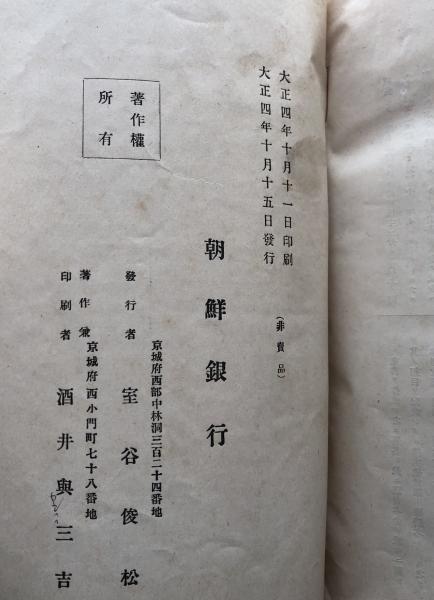 大正四年十月十一日印刷
大正四年十月十五日發行
(非賣品)
朝鮮銀行
京城府西部中林洞三百二十四番地
發行者 室谷俊松
著作兼
印刷者
京城府西小門町七十八番地
酒井與三吉
著作權
所有